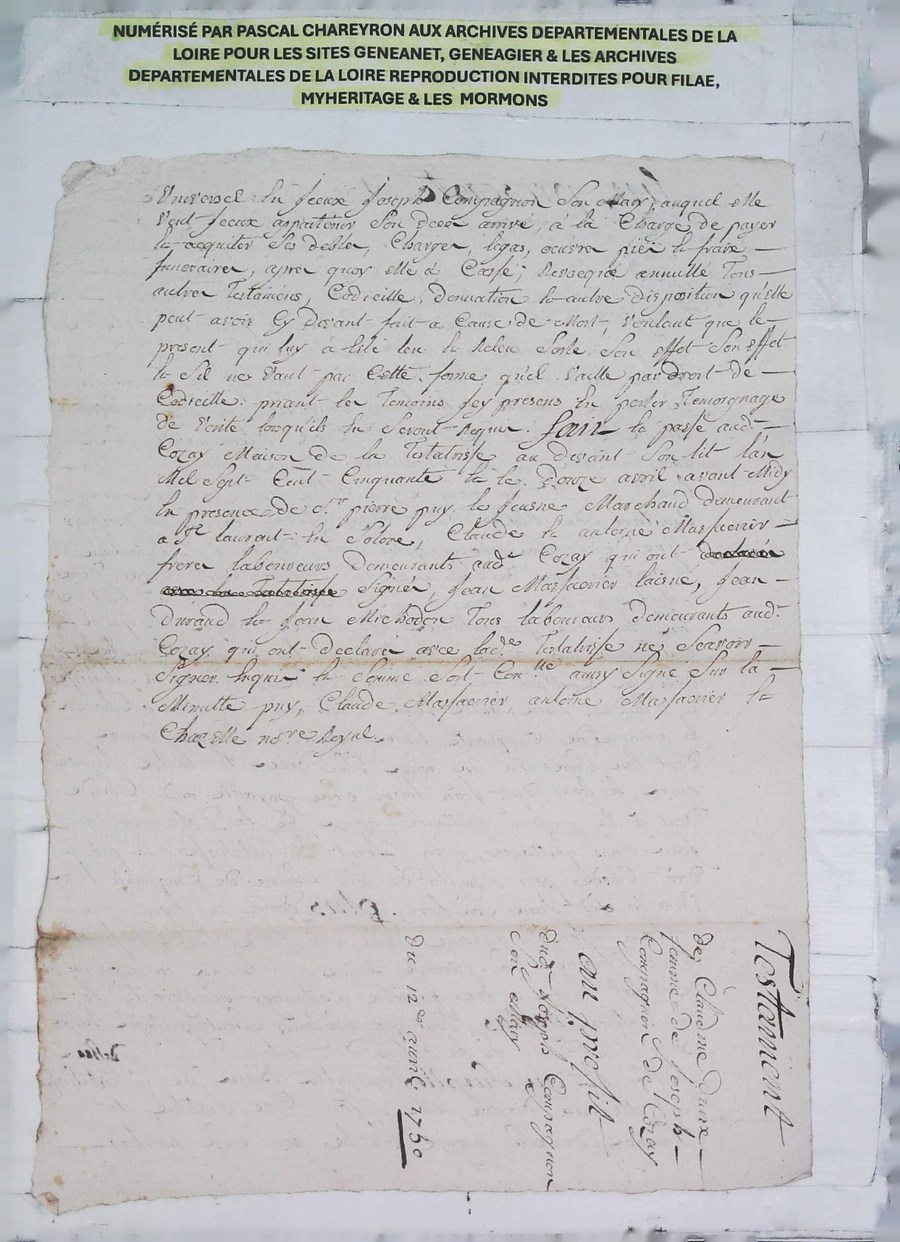 NUMÉRISÉ PAR PASCAL CHAREYRON AUX ARCHIVES DEPARTEMENTALES DE LA
LOIRE POUR LES SITES GENEANET, GENEAGIER & LES ARCHIVES
DEPARTEMENTALES DE LA LOIRE REPRODUCTION INTERDITES POUR FILAE,
MYHERITAGE & LES MORMONS
Universel Joseph Compagnon Son Mary, auquel elle
veut appartenir Son deces arrivé, à la Charge de payer
acquiter Ses debtes, Charges, legas, pies frais
funeraires, apres quoy elle à Cassé, Revocqué annullé Tous
autres Testaments, Codicille, donnation autre disposition qu'elle
peut avoir Cy devant fait a Cause de Mort, voulant que le
present qui luy à Esté leu Releu Sorte Son effet Son effet
Sil ne vaut par Cette forme qu'il vaille par droit de
Codicille priant les Temoins Icy presens En porter Temoignage
de verité lorsquils En Seront Requis. Fait passé aud.
Cozay Maison de la Testatrisse au devant Son lit l'an
Mil Sept Cent Cinquante le Douze avril avant Midy
En presence de pierre puy le Jeusne Marchand demeurant
a laurent En Solore, Claude antoine Massacrier
freres laboureurs demeurants aud. Cozay qui ont
Signés, Jean Massacrier laisné, Jean
Durand Jean Michodon Tous laboureurs demeurants aud.
Cozay qui ont Declaré avec lad.e Testatrisse ne Scavoir
Signer Enquis Somme Soit Con.lle aussy Signé Sur la
Minutte puy, Claude Massacrier antoine Massacrier
Chazelle no.re Royal.
Testament
de Claudine
femme de Joseph
Compagnon de Cozay
au profit
dud. Joseph Compagnon
Son Mary
Du 12e avril 1750